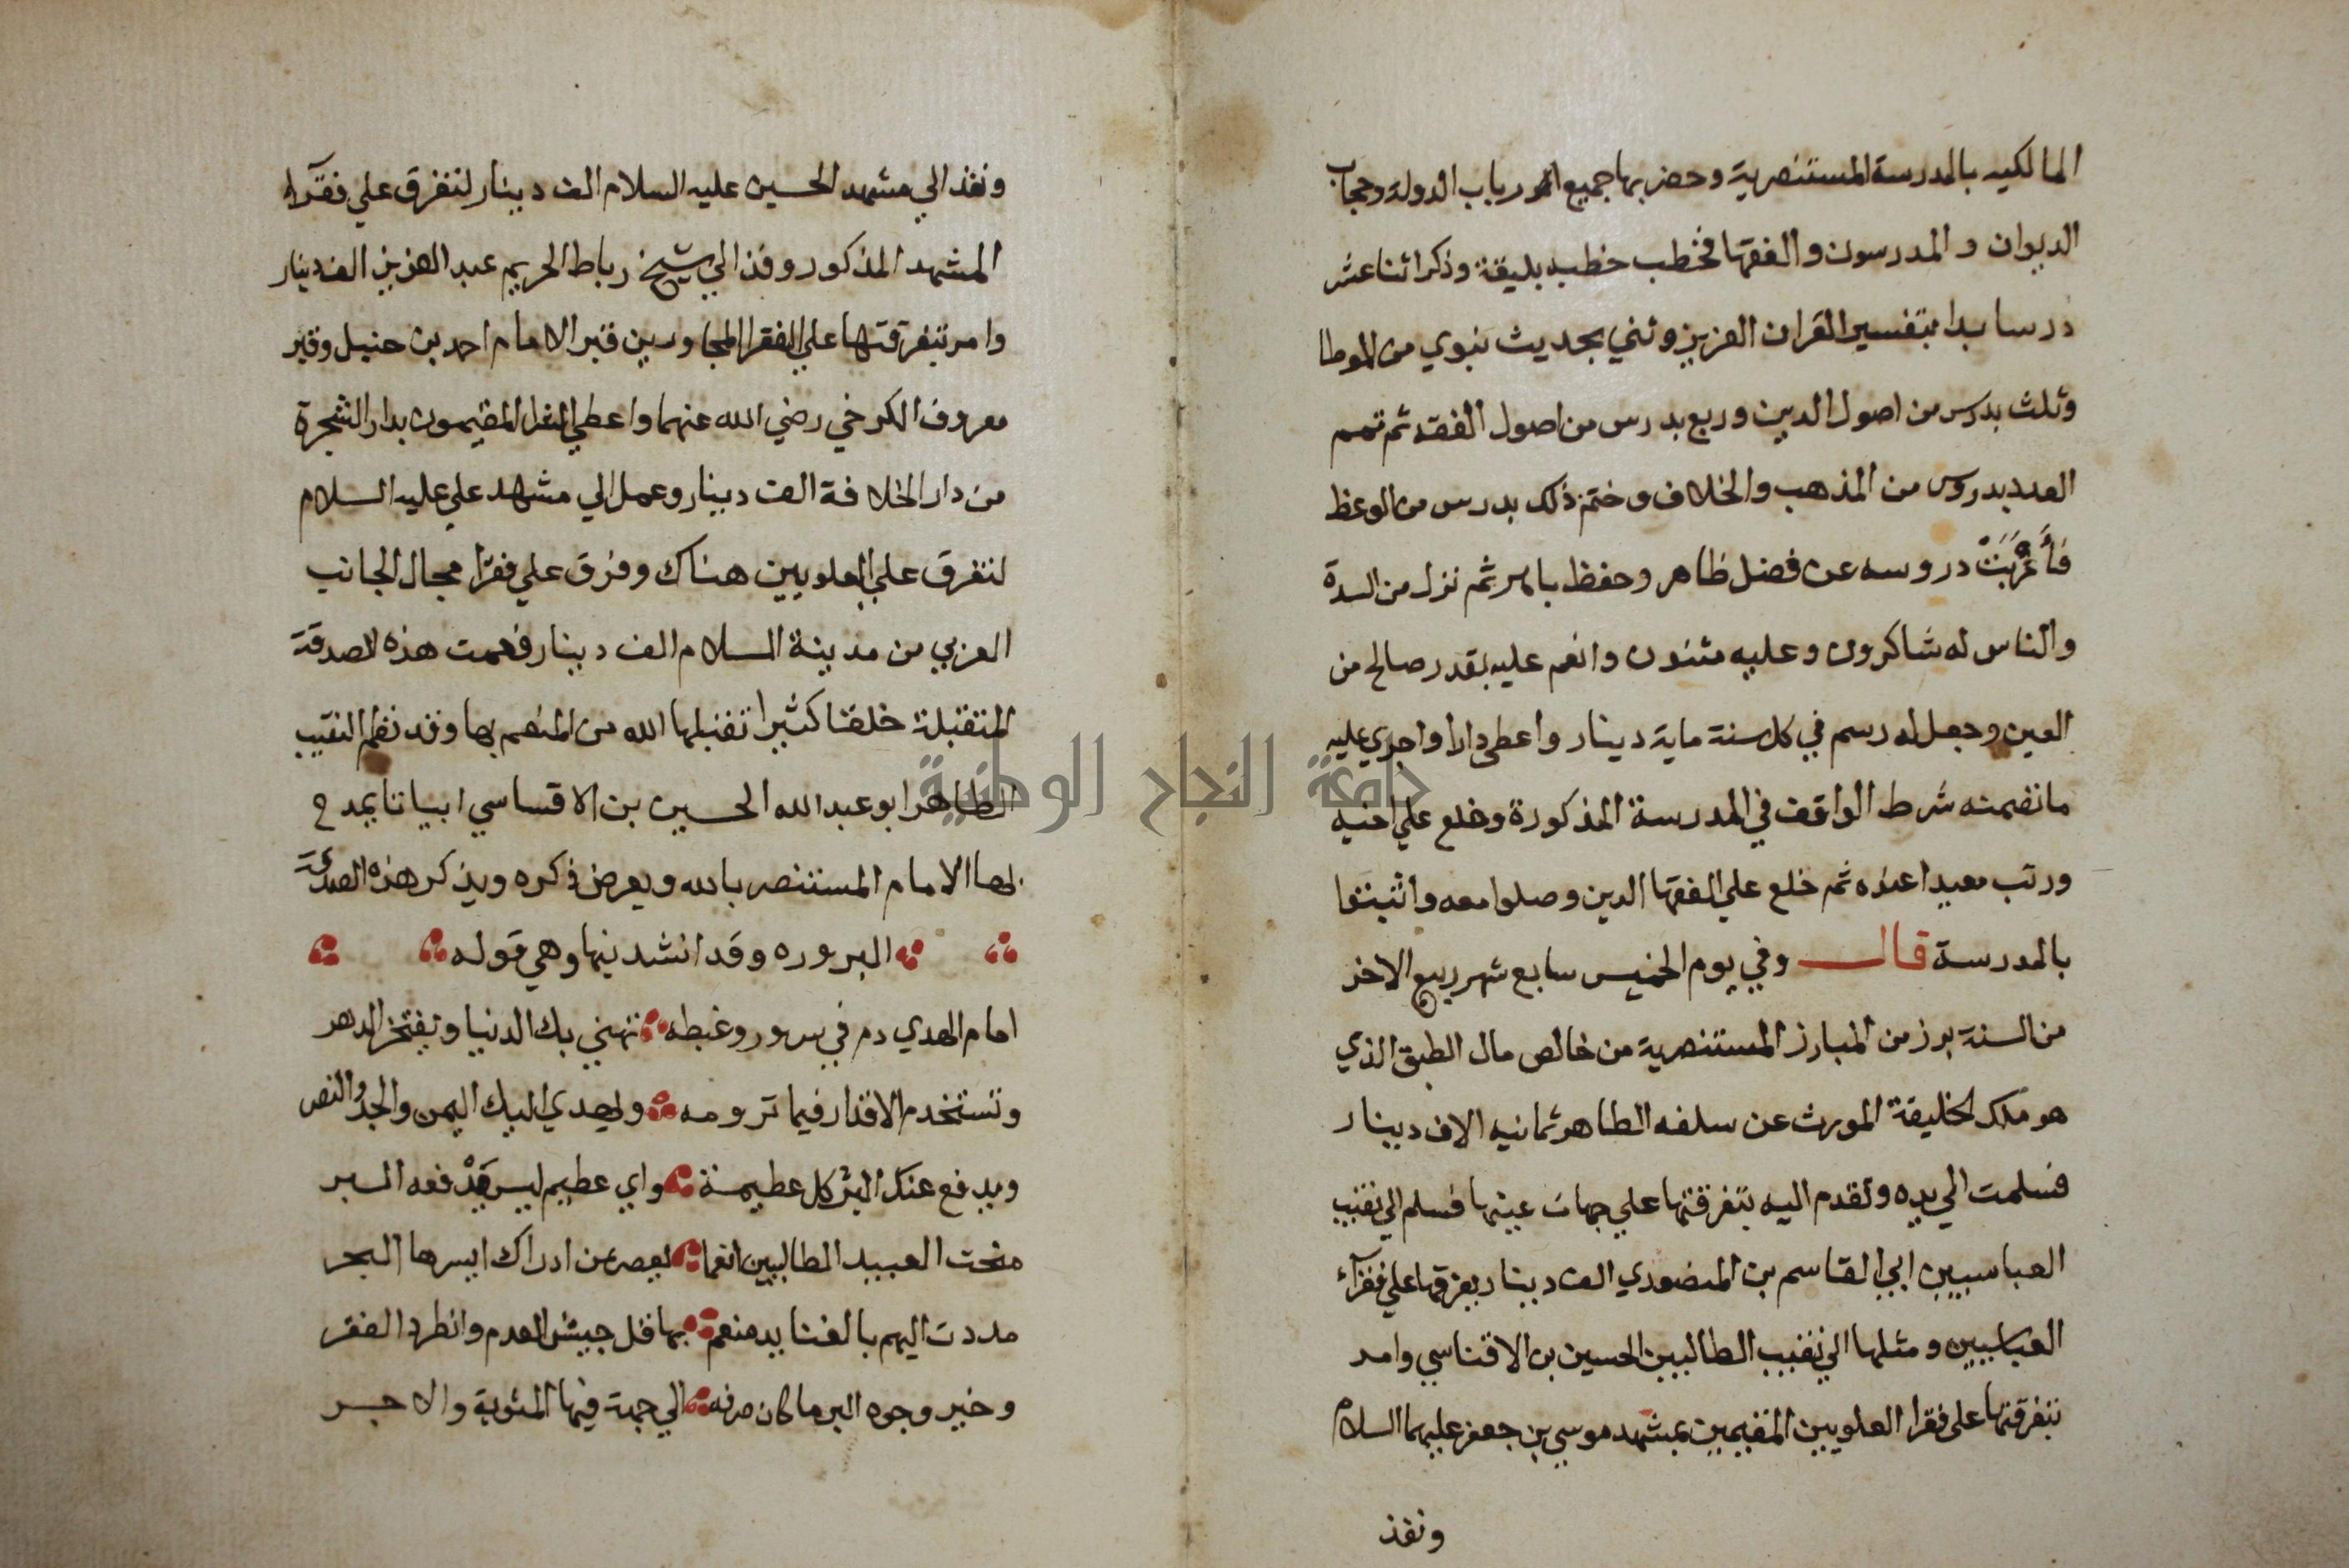 المالكيه بالمدرسة المستنصرية وحضر بها جميع ارباب الدولة وحجاب
الديوان والمدرسون والفقها فخطب خطبه بليقة وذكر اثنا عشر
درسا بدا بتفسير القران العزيز وثني بحديث نبوي من الموطا
وثلث بدرس من اصول الدين وربع بدرس من اصول الفقه ثم تمم
العدد بدروس من المذهب والخلاف وختم ذلك بدرس من الوعظ
فأعربت دروسه عن فضل ظاهر وحفظ باهر ثم نزل من السدة
والناس له شاكرون وعليه مثنون وانعم عليه بقدر صالح من
العين وجعل له رسم في كل سنة ماية دينار واعطي دارا واجري عليه
ما تضمنه شرط الواقف في المدرسة المذكورة وخلع علي اخيه
ورتب معيدا عنده ثم خلع علي الفقها الدين وصلوا معه واثبتوا
بالمدرسة قال وفي يوم الخميس سابع شهر ربيع الاخر
من السنة برز من المبارز المستنصرية من خالص مال الطبق الذي
هو ملك لخليفة المورث عن سلفه الطاهر ثمانيه الاف دينار
فسلمت الي يده وتقدم اليه بتفرقتها علي جهات عينها فسلم الي نقيب
العباسيين ابي القاسم بن المنصوري الف دينار يفرقها علي فقرآء
العباسيين ومثلها الي نقيب الطالبيين الحسين بن الاقساسي وامر
بتفرقتها علي فقرا العلويين المقيمين بمشهد موسي بن جعفر عليهما السلام
ونفذ
ونفذ الي مشهد الحسين عليه السلام الف دينار لتفرق علي فقرآء
المشهد المذكور وفذ الي شيخ رباط الحريم عبد العزيز الف دينار
وامر بتفرقتها علي الفقرا المجاوسين قبر الامام احمد بن حنبل وقبر
معروف الكرخي رضي الله عنهما واعطي الفقرا المقيمون بدار الشجرة
من دار الخلافة الف دينار وعمل الي مشهد علي عليه السلام
لتفرق علي العلويين هناك وفرق علي فقرا محال الجانب
الغربي من مدينة السلام الف دينار فعمت هذه الصدقة
المتقبلة خلقا كثيرا تقبلها الله من المنعم بها وقد نظم النقيب
الطاهر ابو عبد الله الحسين بن الاقساسي ابياتا يمدح
بها الامام المستنصر بالله ويعرض ذكره ويذكر هذه الصدقة
البروره وقد انشدنيها وهي قوله
امام الهدي دم في سرور وغبطه تهني بك الدنيا ويفتخر الدهر
وتستخدم الاقدار فيما ترومه ويهدي اليك اليمن والجد والنصر
ويدفع عنك البر كل عظيمة واي عظيم ليس يدفعه البر
منحت العبيد الطالبيين انعما يقصر عن ادراك ايسرها البحر
مددت اليهم بالغنا يد منعم بها فل جيش العدم وانطرد الفقر
وخير وجوه البر ما كان صرفه الي جهة فيها المثوبة والاجر
جامعة النجاح الوطنية